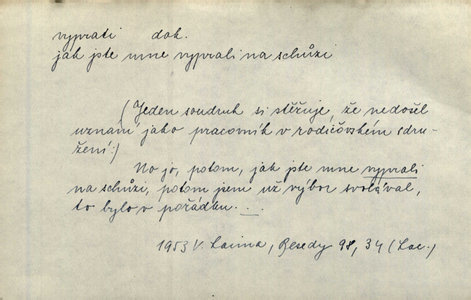 vyprati dok.
jak jste mne vyprali na schůzi
(Jeden soudruh si stěžuje, že nedošel
uznání jako pracovník v rodičovském sdru-
žení:)
No jo, potom, jak jste mne vyprali
na schůzi, potom jsem už výbor svolával,
to bylo v pořádku...
1953 V. Lacina, Besedy 98, 34 (Lac.)